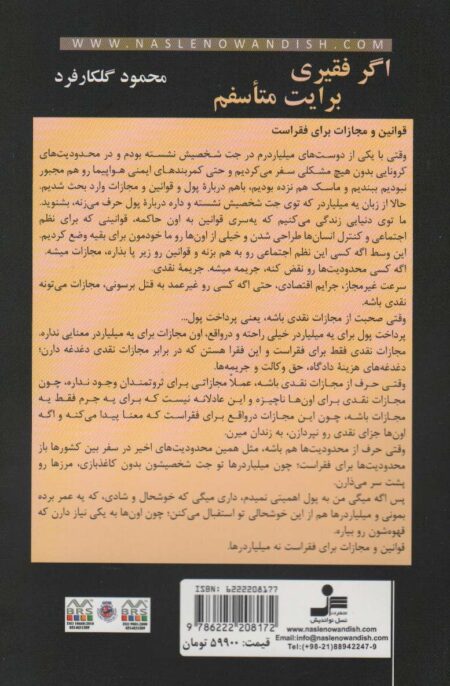 WWW.NASLENOWANDISH.COM
اگر فقیری
برایت متأسفم
محمود گلکارفرد
قوانین و مجازات برای فقراست
وقتی با یکی از دوست‌های میلیاردرم در جت شخصیش نشسته بودم و در محدودیت‌های
کرونایی بدون هیچ مشکلی سفر می‌کردیم و حتی کمربندهای ایمنی هواپیما رو هم مجبور
نبودیم ببندیم و ماسک هم نزده بودیم، باهم دربارهٔ پول و قوانین و مجازات وارد بحث شدیم.
حالا از زبان یه میلیاردر که توی جت شخصیش نشسته و داره دربارهٔ پول حرف می‌زنه، بشنوید.
ما توی دنیایی زندگی می‌کنیم که یه‌سری قوانین به اون حاکمه، قوانینی که برای نظم
اجتماعی و کنترل انسان‌ها طراحی شدن و خیلی از اون‌ها رو ما خودمون برای بقیه وضع کردیم.
این وسط اگه کسی این نظم اجتماعی رو به هم بزنه و قوانین رو زیر پا بذاره، مجازات میشه.
اگه کسی محدودیت‌ها رو نقض کنه، جریمه میشه. جریمهٔ نقدی.
سرعت غیرمجاز، جرایم اقتصادی، حتی اگه کسی رو غیرعمد به قتل برسونی، مجازات می‌تونه
نقدی باشه.
وقتی صحبت از مجازات نقدی باشه، یعنی پرداخت پول...
پرداخت پول برای یه میلیاردر خیلی راحته و درواقع، اون مجازات برای یه میلیاردر معنایی نداره.
مجازات نقدی فقط برای فقراست و این فقرا هستن که در برابر مجازات نقدی دغدغه دارن؛
دغدغه‌های هزینهٔ دادگاه، حق وکالت و جریمه‌ها.
وقتی حرف از مجازات نقدی باشه، عملاً مجازاتی برای ثروتمندان وجود نداره، چون
مجازات نقدی برای اون‌ها ناچیزه و این عادلانه نیست که برای یه جرم فقط یه
مجازات باشه، چون این مجازات درواقع برای فقراست که معنا پیدا می‌کنه و اگه
اون‌ها جزای نقدی رو نپردازن، به زندان میرن.
وقتی حرف از محدودیت‌ها هم باشه، مثل همین محدودیت‌های اخیر در سفر بین کشورها باز
محدودیت‌ها برای فقراست؛ چون میلیاردرها تو جت شخصیشون بدون کاغذبازی، مرزها رو
پشت سر می‌ذارن.
پس اگه میگی من به پول اهمیتی نمیدم، داری میگی که خوشحال و شادی، که یه عمر برده
بمونی و میلیاردرها هم از این خوشحالی تو استقبال می‌کنن؛ چون اون‌ها به یکی نیاز دارن که
قهوه‌شون رو بیاره.
قوانین و مجازات برای فقراست نه میلیاردرها.
ISBN: 6222208177
9 786222 208172
قیمت: ۵۹۹۰۰ تومان
نسل نواندیش
www.naslenowandish.com
Email:info@naslenowandish.com
Tel:(+98-21)88942247-9
BRS
BRS